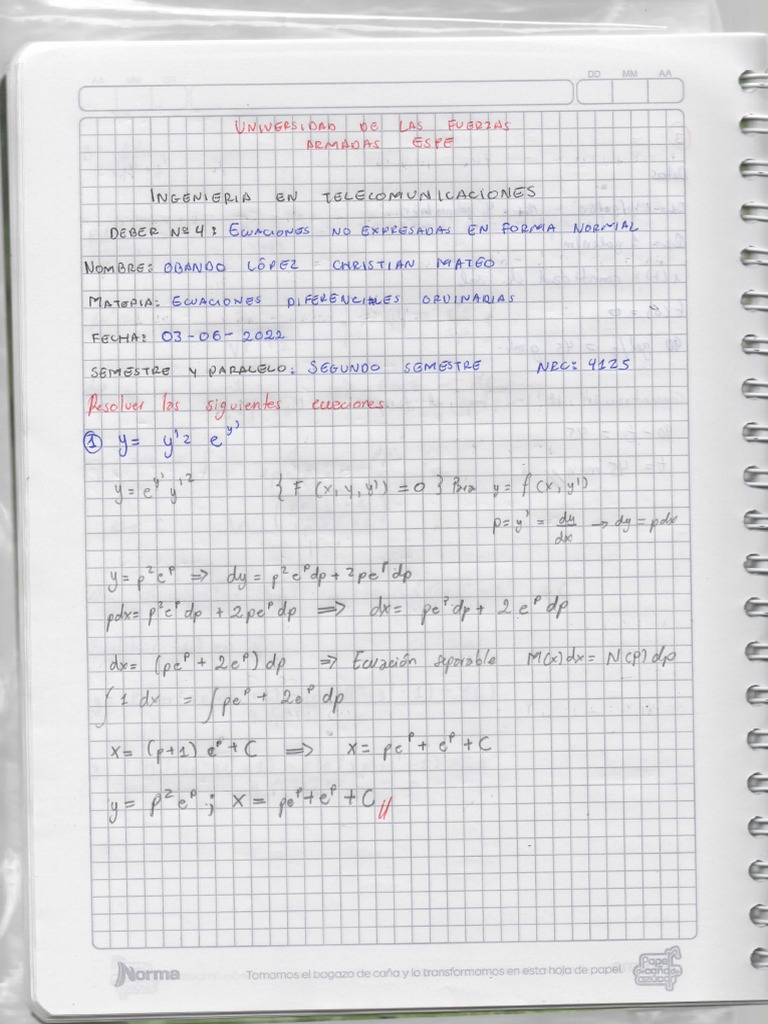 DD MM AA
UNIVERSIDAD DE LAS FUERZAS
ARMADAS ESPE
INGENIERIA EN TELECOMUNICACIONES
DEBER Nº 4: ECUACIONES NO EXPRESADAS EN FORMA NORMAL
NOMBRE: OBANDO LÓPEZ CHRISTIAN MATEO
MATERIA: ECUACIONES DIFERENCIALES ORDINARIAS
FECHA: 03-06-2022
SEMESTRE Y PARALELO: SEGUNDO SEMESTRE NRC: 4125
Resolver las siguientes ecuaciones
① y = y'² e^y'
y = e^y' y'² { F (x, y, y') = 0 } Para y = f (x, y')
p = y' = dy/dx → dy = pdx
y = p²e^p ⇒ dy = p²e^p dp + 2pe^p dp
pdx = p²e^p dp + 2pe^p dp ⇒ dx = pe^p dp + 2e^p dp
dx = (pe^p + 2e^p) dp ⇒ Ecuación separable M(x)dx = N(p)dp
∫1 dx = ∫pe^p + 2e^p dp
x = (p+1) e^p + C ⇒ x = pe^p + e^p + C
y = p²e^p ; x = pe^p + e^p + C //
Norma Tomamos el bagazo de caña y lo transformamos en esta hoja de papel. Papel caña de azúcar